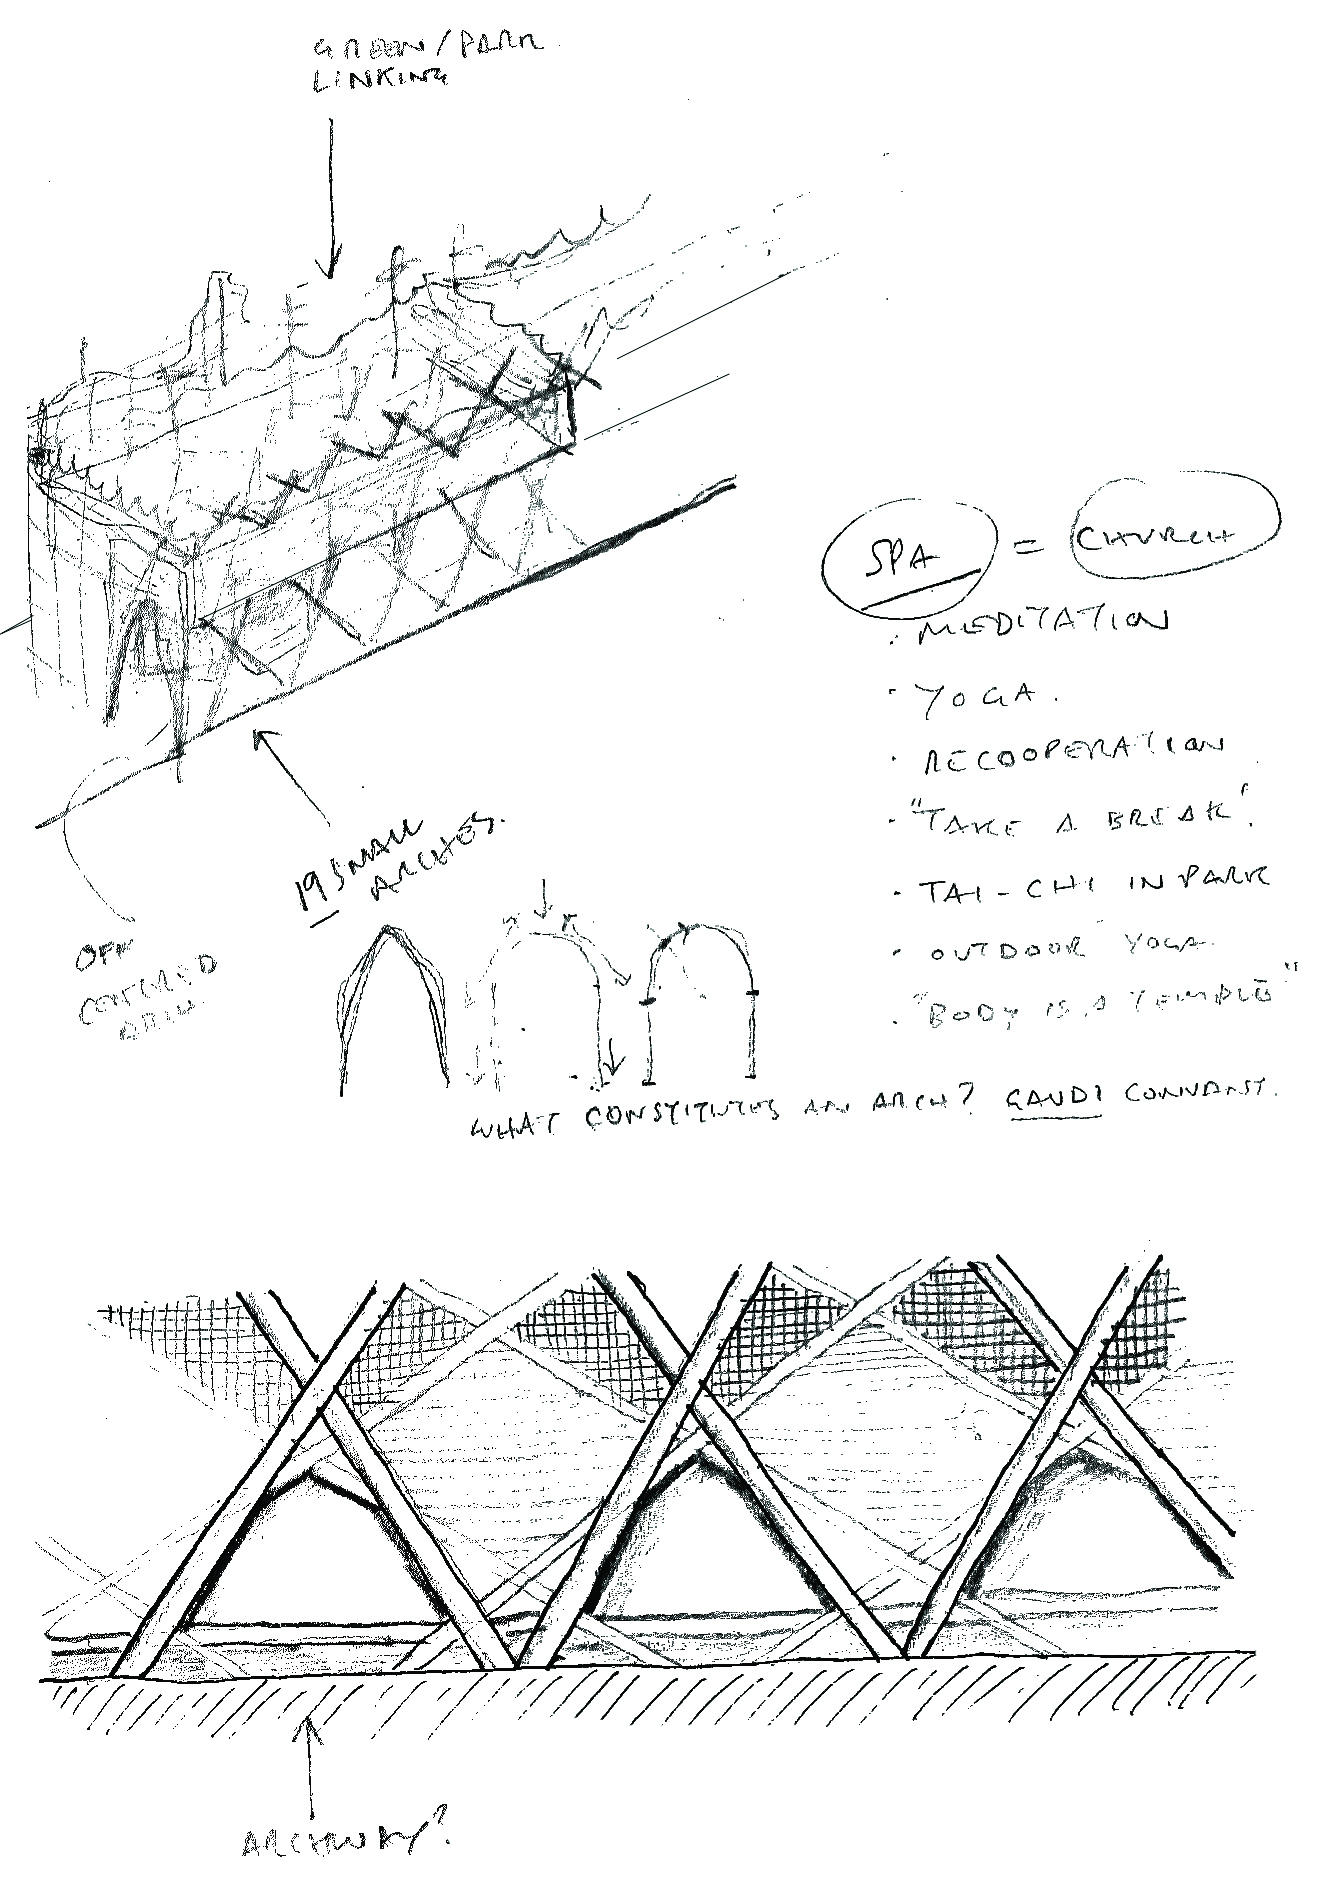 GREEN/PARK
LINKING
SPA = CHURCH
· MEDITATION
· YOGA.
· RECOOPERATION
· "TAKE A BREAK".
· TAI-CHI IN PARK
· OUTDOOR YOGA.
· "BODY IS A TEMPLE"
19 SMALL
ARCHES.
OFF
CENTERED
ARCH.
WHAT CONSTITUTES AN ARCH? GAUDI
ARCHWAY?